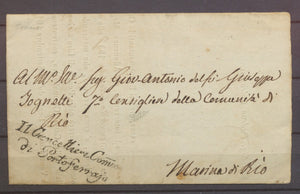 Al Mo. Illre. Sig. Giov: Antonio del fu Giuseppe
Tognetti Po. Consigliere della Comunità di
Rio
Il Cancelliere Comun.
di Portoferrajo
Marina di Rio